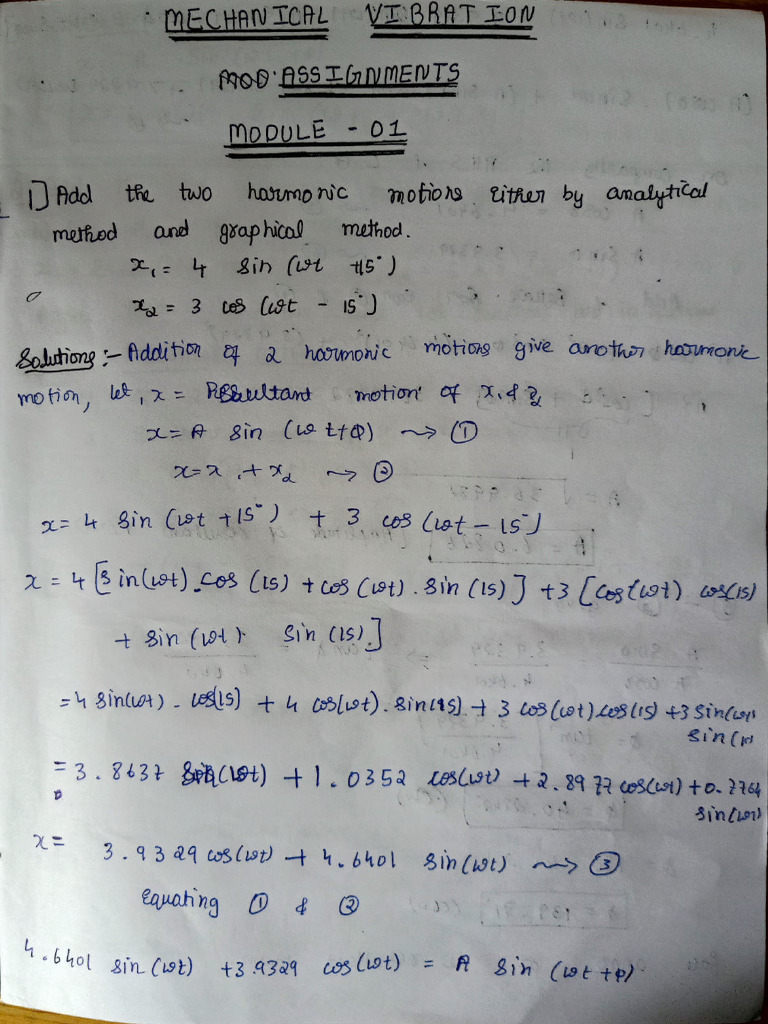 MECHANICAL VIBRATION
ASSIGNMENTS
MODULE - 01
1] Add the two harmonic motions either by analytical
method and graphical method.
x₁ = 4 sin (ωt +15°)
x₂ = 3 cos (ωt - 15°)
Solutions:- Addition of 2 harmonic motions give another harmonic
motion, let, x = Resultant motion of x₁ & x₂
x = A sin (ωt+φ) ⟿ ①
x = x₁ + x₂ ⟿ ②
x = 4 sin (ωt +15°) + 3 cos (ωt - 15°)
x = 4 [sin(ωt).cos (15) + cos (ωt). sin (15)] +3 [cos(ωt) cos(15)
+ sin (ωt). sin (15)]
=4 sin(ωt). cos(15) + 4 cos(ωt). sin(15) + 3 cos(ωt).cos(15) +3 sin(ωt)
sin (15
= 3.8637 sin(ωt) + 1.0352 cos(ωt) + 2.8977 cos(ωt) + 0.7764
sin(ωt)
x = 3.9329 cos(ωt) + 4.6401 sin(ωt) ⟿ ③
Equating ① & ②
4.6401 sin (ωt) +3.9329 cos(ωt) = A sin (ωt +φ)